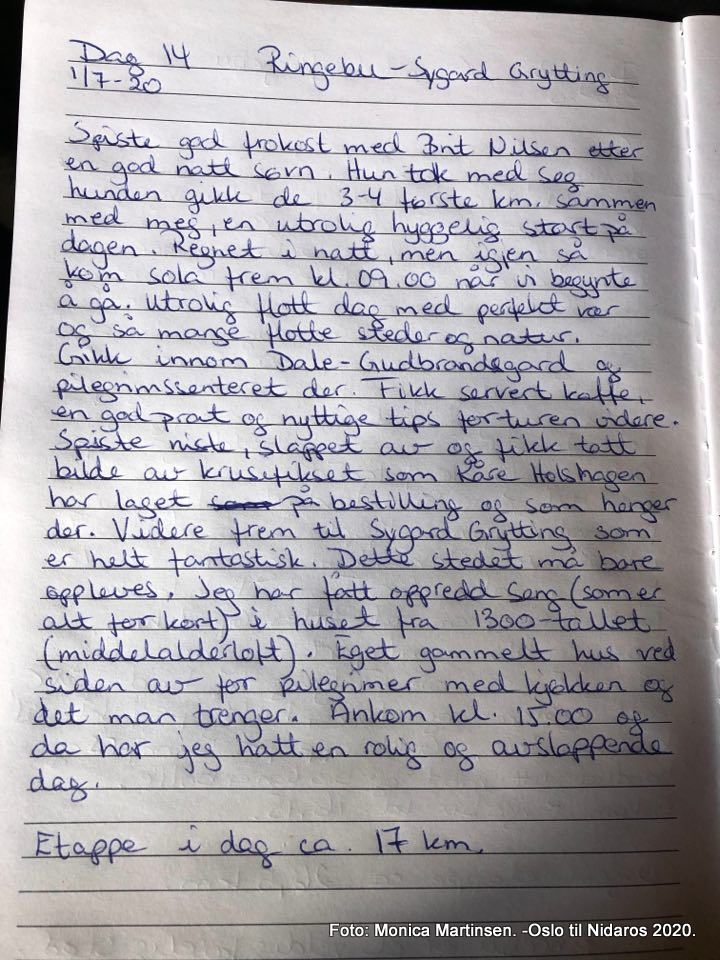 Dag 14 Ringebu - Sygard Grytting
1/7-20
Spiste god frokost med Brit Nilsen etter
en god natt søvn. Hun tok med seg
hunden gikk de 3-4 første km. sammen
med meg, en utrolig hyggelig start på
dagen. Regnet i natt, men igjen så
kom sola frem kl. 09.00 når vi begynte
å gå. Utrolig flott dag med perfekt vær
og så mange flotte steder og natur.
Gikk innom Dale-Gudbrandsgard og
pilegrimssenteret der. Fikk servert kaffe,
en god prat og nyttige tips for turen videre.
Spiste niste, slappet av og fikk tatt
bilde av krusifikset som Kåre Holshagen
har laget som på bestilling og som henger
der. Videre frem til Sygard Grytting som
er helt fantastisk. Dette stedet må bare
oppleves. Jeg har fått oppredd seng (som er
alt for kort) i huset fra 1300-tallet
(middelalderloft). Eget gammelt hus ved
siden av for pilegrimer med kjøkken og
det man trenger. Ankom kl. 15.00 og
da har jeg hatt en rolig og avslappende
dag.
Etappe i dag ca. 17 km.
Foto: Monica Martinsen. -Oslo til Nidaros 2020.